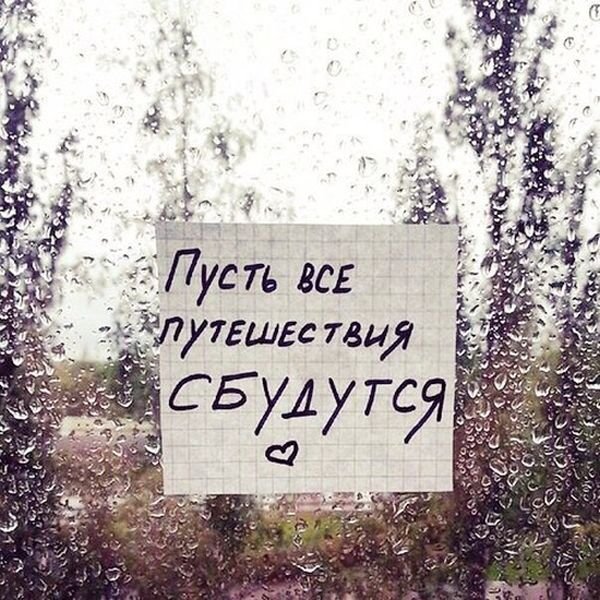 Пусть все
путешествия
сбудутся